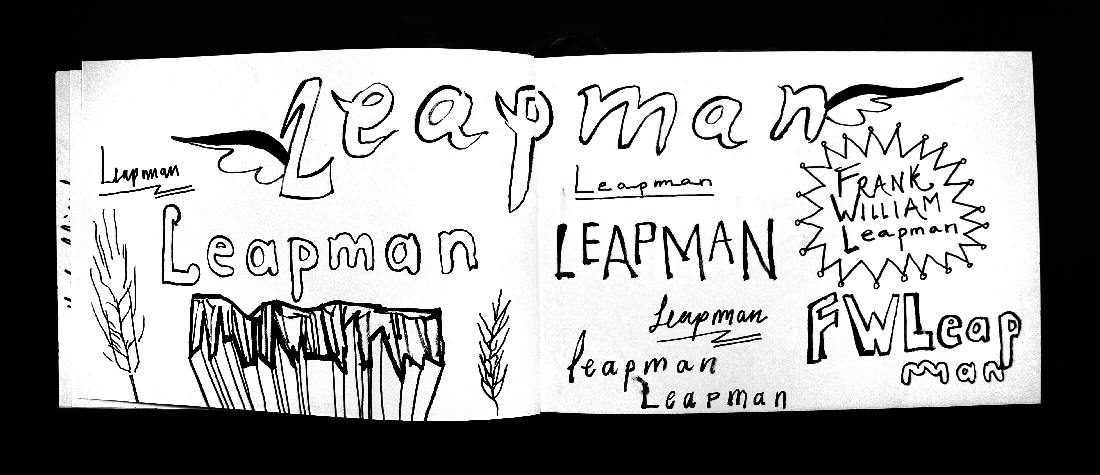 Leapman
Leapman
Leapman
Leapman
LEAPMAN
Leapman
leapman
Leapman
FRANK
WILLIAM
Leapman
FWLeap
man